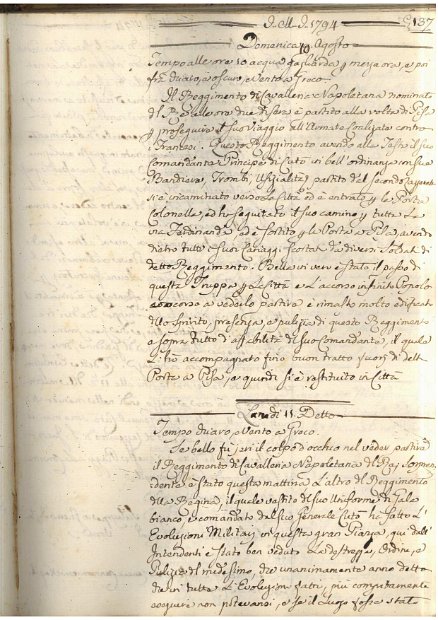 I. M. I. 1794
137
Domenica 10 Agosto
Tempo alle ore 10 acqua gagliarda p mezza ora, e poi
chiaro, e oscuro, e Vento a Greco.
Il Reggimento di Cavalleria Napoletana nominato
del Rè alle ore due di sera è partito alla volta di Pisa
p proseguire il suo Viaggio all'Armata Combinata contro
i Franzesi. Questo Reggimento avendo alla Testa il suo
Comandante Principe di Cutò in bell'ordinanza con sua
Bandiera, Trombe, Ufizialità, partito dal
si è incamminato verso la Città ed è entrato p la Porta
Colonnella, ed hà seguitato il suo camino p tutta la
Via Ferdinanda ed è sortito p la Porta a Pisa, avendo
dietro tutti i suoi Cariaggi scortati da diversi Soldati di
detto Reggimento. Bella in vero è stato il passo di
questa Truppa p la Città e l'accorso infinito Popolo
accorso a vederlo partire è rimasto molto edificato
dello spirito, presenza, e pulizia di questo Reggimento
e sopra tutto di affabilità di suo Comandante, il quale
l'hà accompagnato fino buon tratto fuori di detta
Porta a Pisa, e quindi si è restituito in Città
Lunedi 11 Detto
Tempo chiaro, e Vento a Greco.
Se bello fù jeri il colpo d'occhio nel veder partire
il Reggimento di Cavalleria Napoletana del Rè, Sorprendente
è stato questa mattina l'altro del Reggimento
della Regina, il quale vestito di suo Uniforme di Gala
bianco, e comandato dal suo Generale Cutò hà fatto l'
Evoluzioni Militari in questa gran Piazza, qui dall'
Intendenti è stato ben veduto la destrezza, Ordine, e
Pulizia del medesimo, che unanimamente anno detto
che in tutte l'Evoluzioni fatte, più compitamente
eseguire non potevansi, e se il Luogo fosse stato